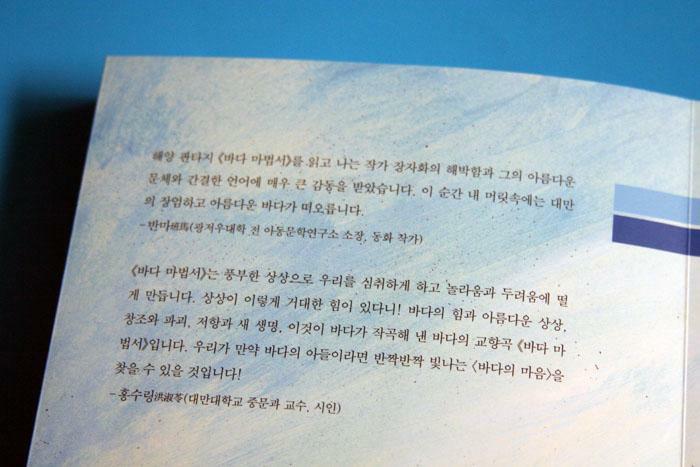 해양 판타지 《바다 마법서》를 읽고 나는 작가 장자화의 해박함과 그의 아름다운
문체와 간결한 언어에 매우 큰 감동을 받았습니다. 이 순간 내 머릿속에는 대만
의 장엄하고 아름다운 바다가 떠오릅니다.
-반마班馬(광저우대학 전 아동문학연구소 소장, 동화 작가)
《바다 마법서》는 풍부한 상상으로 우리를 심취하게 하고 놀라움과 두려움에 떨
게 만듭니다. 상상이 이렇게 거대한 힘이 있다니! 바다의 힘과 아름다운 상상,
창조와 파괴, 저항과 새 생명, 이것이 바다가 작곡해 낸 바다의 교향곡 《바다 마
법서》입니다. 우리가 만약 바다의 아들이라면 반짝반짝 빛나는 〈바다의 마음〉을
찾을 수 있을 것입니다!
-홍수링洪淑苓(대만대학교 중문과 교수, 시인)